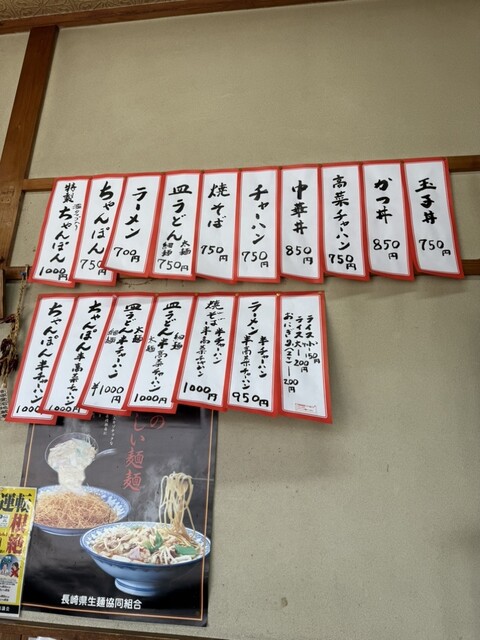 玉子丼
750円
かつ丼
850円
高菜チャーハン
750円
中華丼
850円
チャーハン
750円
焼そば
750円
皿うどん 太麺 細麺
750円
ラーメン
700円
ちゃんぽん
750円
特製ちゃんぽん
1000円
ライス小 150円
ライス大 200円
おにぎり(2ケ) 200円
ラーメン 半チャーハン 半高菜チャーハン
950円
焼そば 半チャーハン
1000円
皿うどん 半高菜チャーハン
太麺 細麺
1000円
皿うどん 半チャーハン
太麺 細麺
¥1000円
ちゃんぽん 半高菜チャーハン
1000円
ちゃんぽん 半チャーハン
1000円
の
しい麺麺
長崎県生麺協同組合
運転
根絶